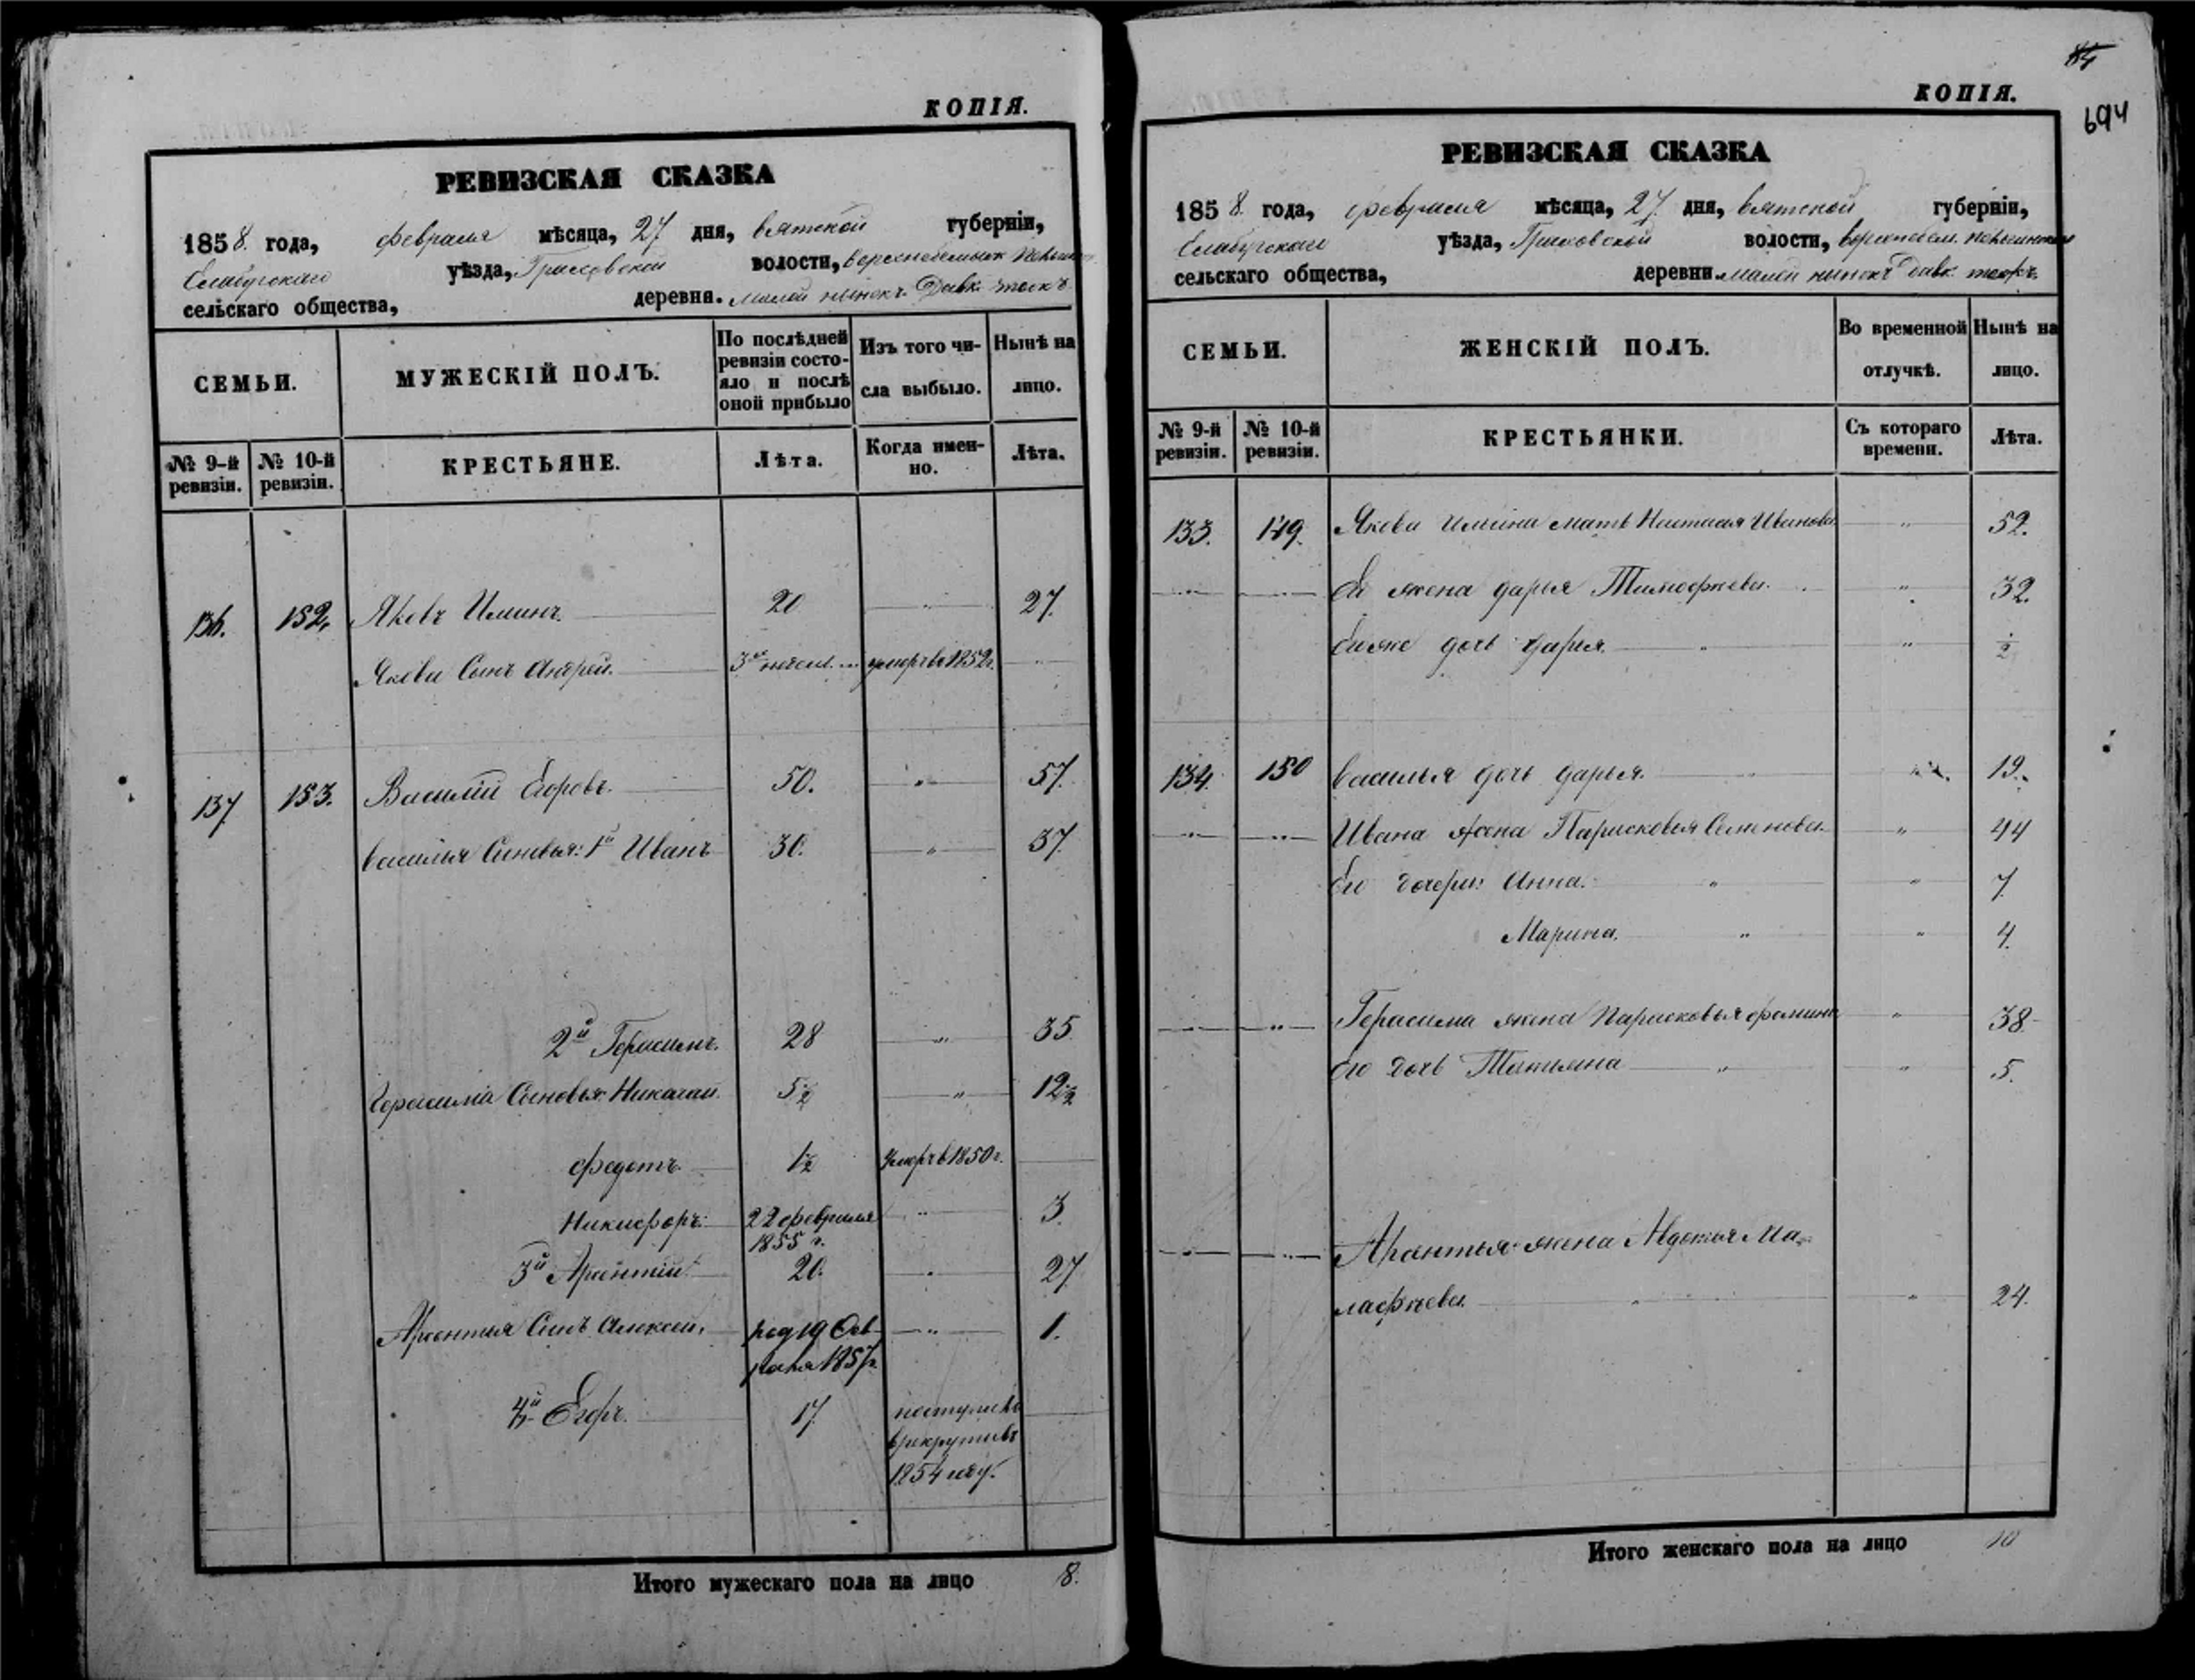 КОПІЯ.
РЕВИЗСКАЯ СКАЗКА
1858 года, февраля мѣсяца, 27 дня, вятской губерніи,
Елабугскаго уѣзда, волости,
сельскаго общества, деревня. малой
СЕМЬИ.
МУЖЕСКІЙ ПОЛЪ.
По послѣдней ревизіи состояло и послѣ оной прибыло
Изъ того числа выбыло.
Нынѣ на лицо.
№ 9-й ревизіи.
№ 10-й ревизіи.
КРЕСТЬЯНЕ.
Лѣта.
Когда именно.
Лѣта.
136. 152. Яковъ 20 " 27.
Якова Сынъ Андрей. умеръ в 1852 г. "
137 153. Василий Егоровъ. 50. " 57.
василья Синовья: 1й Иванъ 30. " 37.
2й Герасимъ. 28 " 35.
Сыновья: Николай 5½ " 12½
федотъ. 1½ умеръ в 1850 г.
Никифоръ. 22 февраля " 3.
1855 г.
3й Арентий 20. " 27
Арентия Сынъ Алексей, род 19 " 1.
1857 г.
4й Егоръ. 17
в рекруты въ
1854 году.
Итого мужескаго пола на лицо 8.
84
694
КОПІЯ.
РЕВИЗСКАЯ СКАЗКА
1858 года, февраля мѣсяца, 27 дня, вятской губерніи,
Елабугскаго уѣзда, волости,
сельскаго общества, деревни малой
СЕМЬИ.
ЖЕНСКІЙ ПОЛЪ.
Во временной отлучкѣ.
Нынѣ на лицо.
№ 9-й ревизіи.
№ 10-й ревизіи.
КРЕСТЬЯНКИ.
Съ котораго времени.
Лѣта.
133. 149. Якова мать Настасия Иванова " 52.
" " Ее жена дарья Тимофеева. " 32.
Ево же дочь дарья. " " ½
134. 150 василья дочь дарья. " 19.
" " Ивана жена Парасковья Семенова. " 44
Ево дочери: Анна. " " 7
Марина. " " 4.
" " Герасима жена Парасковья фомина " 38
Ево дочь Татьяна " " 5.
" " жена Авдотья Ма-
лафеева. " " 24.
Итого женскаго пола на лицо 10